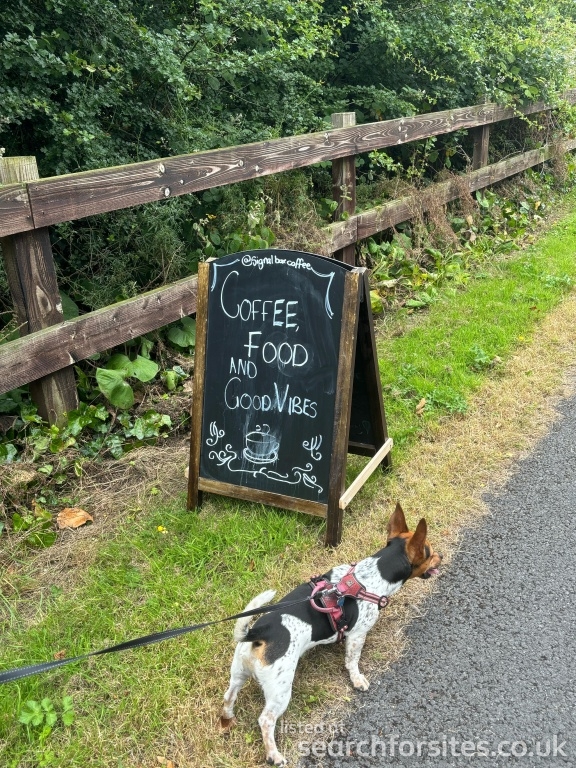 @signal box coffee
COFFEE,
FOOD
AND
GOOD VIBES
listed at
searchforsites.co.uk